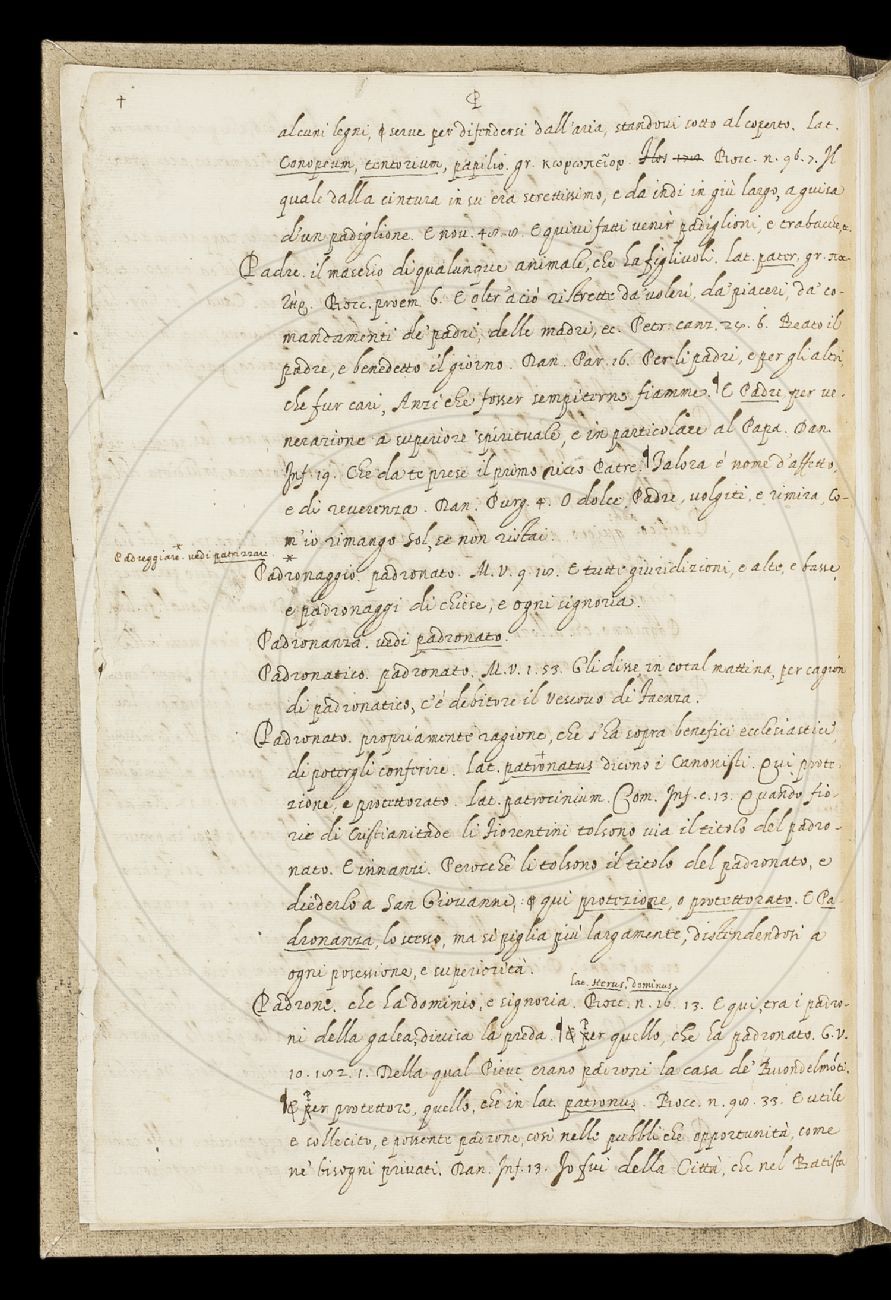 †
P
alcuni legni, e serve per difendersi dall'aria, standovi sotto al coperto. Lat.
Conopeum, tentorium, papilio. gr. κωρωπεῖορ. Bocc. n. 96. 7. Il
quale dalla cintura in su era strettissimo, e da indi in giù largo, a guisa
d'un padiglione. E nov. E quivi fatti venir padiglioni, e trabacche,
Padre. il maschio di qualunque animale, che ha figlivoli. Lat. pater. gr. πα-
τήρ. Bocc. proem. 6. E oltr'a ciò ristrette da voleri, da piaceri, da co-
mandamenti de' padri, delle madri, ec. Petr. canz. 6. Beato il
padre, e benedetto il giorno. Dan. Par. 16. Per li padri, e per gli altri,
che fur cari, Anzi che fosser sempiterne fiamme. ¶ E Padre per ve-
nerazione a superiore spirituale, e in particolare al Papa. Dan.
Inf. 19. Che da te prese il primo ricco Patre. ¶ Talora è nome d'affetto,
e di reverenza. Dan. Purg. 4. O dolce Padre, volgiti, e rimira, Co-
m'io rimango sol, se non ristai.
Padreggiare. vedi patrizzare. *
Padronaggio. padronato. M. V. 9. E tutte giuridizioni, e alte, e basse,
e padronaggi di chiese, e ogni signoria.
Padronanza. vedi padronato.
Padronatico. padronato. M. V. 1. 53. Gli disse in cotal mattina, per cagion
di padronatico, c'è debitore il Vescovo di Faenza.
Padronato. propriamente ragione, che s'ha sopra benefici ecclesiastici,
di potergli conferire. Lat. patronatus dicono i Canonisti. Qui prote-
zione, e protettorato. Lat. patrocinium. Com. Inf. c. 13. Quando fio-
rie di Cristianitade li Fiorentini tolsono via il titolo del padro-
nato. E innanzi. Perocchè li tolsono il titolo del padronato, e
diederlo a San Giovanni, e qui protezione, o protettorato. E Pa-
dronanza, lo stesso, ma si piglia più largamente, distendendosi a
ogni posessione, e superiorità.
Lat. herus, dominus.
Padrone. che ha dominio, e signoria. Bocc. n. 16. 13. E qui, tra i padro-
ni della galea, divisa la preda. ¶ E per quello, che ha padronato. G. V.
10. 1. Nella qual Pieve erano padroni la casa de' Buondelmōti.
¶ E per protettore, quello, che in lat. patronus. Bocc. n. 33. E utile
e sollecito, e possente padrone, così nelle pubbliche opportunità, come
ne' bisogni privati. Dan. Inf. 13. Io fui della Città, che nel Batista